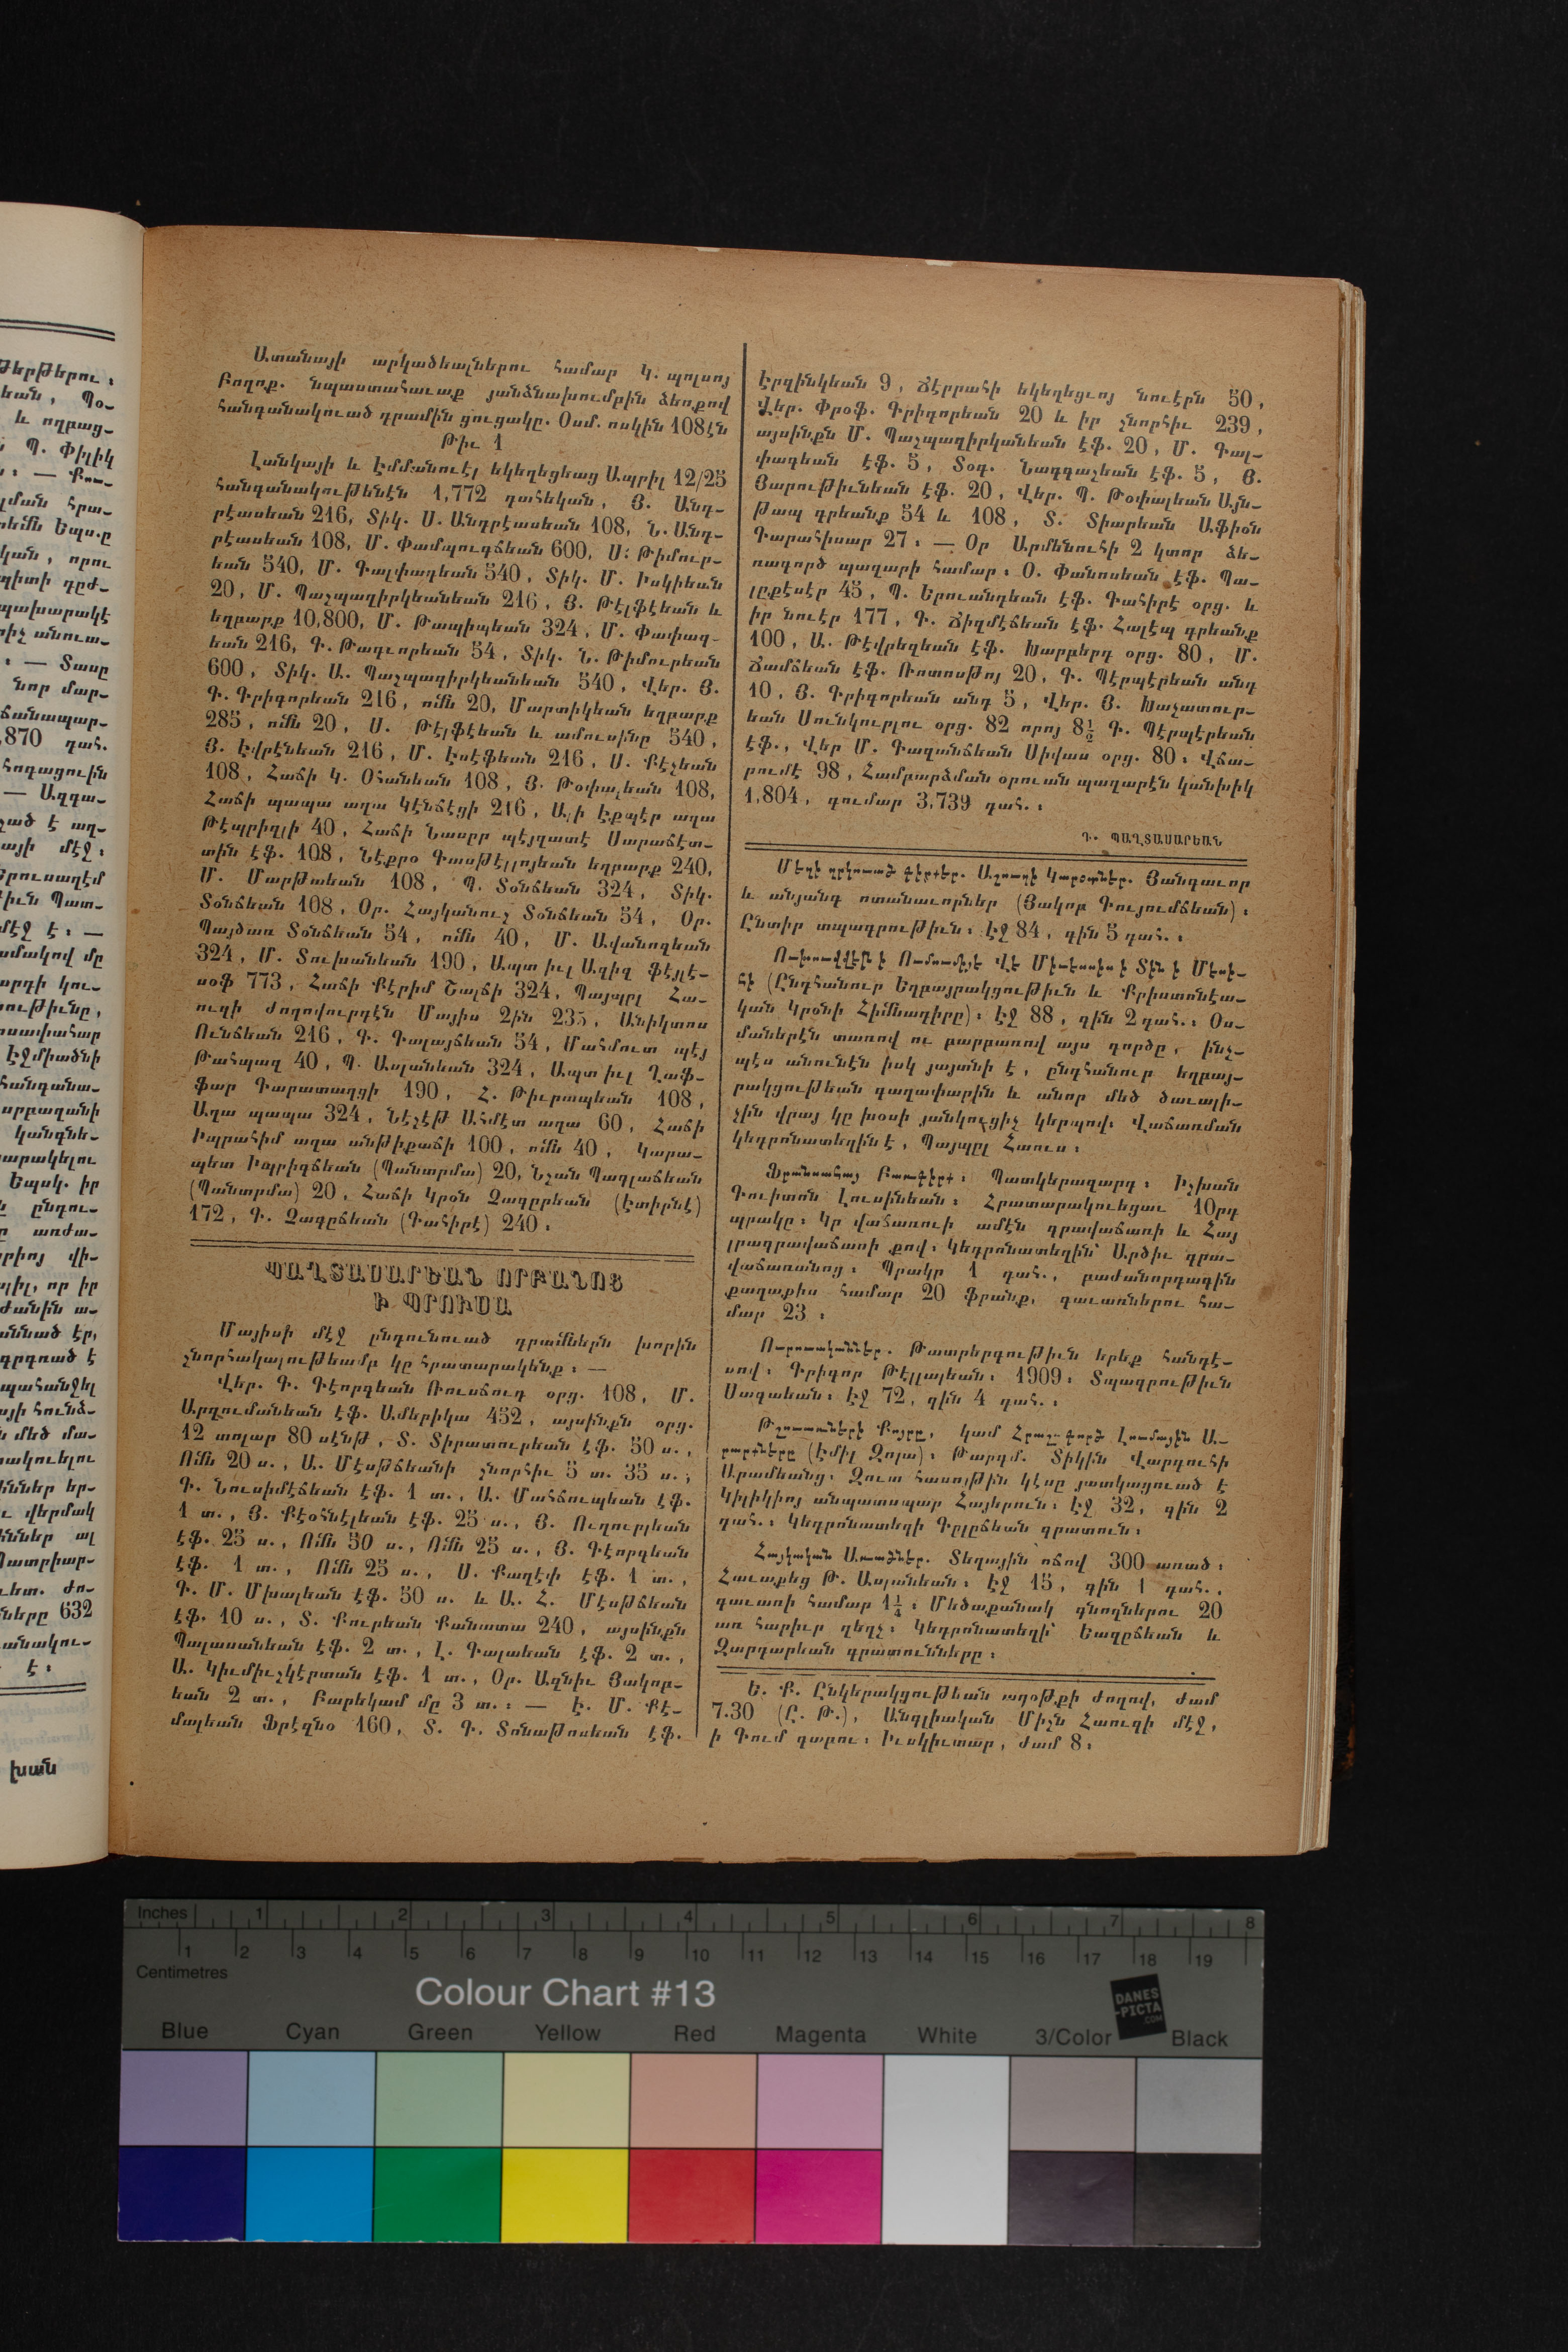 Ատանայի արկածեալներու համար Կ. պոլսոյ
Բողոք. նպաստահաւաք յանձնախումբին ձեռքով
հանգանակուած դրամին ցուցակը. Օսմ. ոսկին 108էն
Թիւ 1
Լանկայի և Էմմանուէլ եկեղեցեաց Ապրիլ 12/25
հանգանակութենէն 1,772 դահեկան, Յ. Անդ-
րէասեան 216, Տիկ. Ս. Անդրէասեան 108, Ն. Անդ-
րէասեան 108, Մ. Փամպուգճեան 600, Ս. Թիմուր-
եան 540, Մ. Գալփադեան 540, Տիկ. Մ. Իսկիեան
20, Մ. Պաչպաղիրկեանեան 216, Յ. Թէլֆէեան և
եղբարք 10,800, Մ. Թապիպեան 324, Մ. Փափազ-
եան 216, Գ. Թագւորեան 54, Տիկ. Ն. Թիմուրեան
600, Տիկ. Ա. Պաչպաղիրկեանեան 540, Վեր. Յ.
Գ. Գրիգորեան 216, ոմն 20, Մարտիկեան եղբարք
285, ոմն 20, Ս. Թէլֆէեան և ամուսինը 540,
Յ. Եվրէնեան 216, Մ. Եսէֆեան 216, Ս. Քէչեան
108, Հաճի Կ. Օհանեան 108, Յ. Թօփալեան 108,
Հաճի պապա աղա Կէնճէցի 216, Ալի Էքպէր աղա
Թէպրիզլի 40, Հաճի Նասըր պէյզատէ Սարաճէտ-
տին էֆ. 108, Նէքրօ Գասթէլլոյեան եղբարք 240,
Մ. Մարթաեան 108, Պ. Տօնճեան 324, Տիկ.
Տօնճեան 108, Օր. Հայկանուշ Տօնճեան 54, Օր.
Պայծառ Տօնճեան 54, ոմն 40, Մ. Ավանոզեան
324, Մ. Տուխանեան 190, Ապտ իւլ Ազիզ ֆէյլէ-
սօֆ 773, Հաճի Քէրիմ Շալճի 324, Պայպըլ Հա-
ուզի ժողովուրդէն Մայիս 2ին 235, Անիկտոս
Ունճեան 216, Գ. Գալայճեան 54, Մահմուտ պէյ
Թահպազ 40, Պ. Ասլանեան 324, Ապտ իւլ Ղաֆ-
ֆար Գարատաղցի 190, Հ. Թիւրապեան 108,
Աղա պապա 324, Նէչէթ Ահմէտ աղա 60, Հաճի
Իպրահիմ աղա անթիքաճի 100, ոմն 40, Կարա-
պետ Իպրիգճեան (Պանտրմա) 20, Նշան Պազլաճեան
(Պանտրմա) 20, Հաճի Կրօն Զաղըրեան (Էտիրնէ)
172, Գ. Չագըճեան (Գահիրէ) 240։
ՊԱՂՏԱՍԱՐԵԱՆ ՈՐԲԱՆՈՑ
Ի ՊՐՈՒՍԱ
Մայիսի մէջ ընդունուած դրամներն խորին
շնորհակալութեամբ կը հրատարակենք։ —
Վեր. Գ. Գէորգեան Ռուսճուգ օրց. 108, Մ.
Արզումանեան էֆ. Ամերիկա 452, այսինքն օրց.
12 տոլար 80 սէնթ, Տ. Տիրատուրեան էֆ. 50 ս.,
Ոմն 20 ս., Ա. Մէսթճեանի շնորհիւ 5 տ. 35 ս.,
Գ. Նուսիմէճեան էֆ. 1 տ., Ա. Մահճուպեան էֆ.
1 տ., Յ. Քէօհնէլեան էֆ. 25 ս., Յ. Ուղուրլեան
էֆ. 25 ս., Ոմն 50 ս., Ոմն 25 ս., Յ. Գէորգեան
էֆ. 1 տ., Ոմն 25 ս., Ս. Քաղէփ էֆ. 1 տ.,
Գ. Մ. Մխալեան էֆ. 50 ս. և Ա. Հ. Մէսթճեան
էֆ. 10 ս., Տ. Քուրեան Քանատա 240, այսինքն
Պալասանեան էֆ. 2 տ., Լ. Գալաեան էֆ. 2 տ.,
Ա. Կիւմիւշկէրտան էֆ. 1 տ., Օր. Ազնիւ Յակոբ-
եան 2 տ., Բարեկամ մը 3 տ.։ — Է. Մ. Քէ-
մալեան Ֆրէզնօ 160, Տ. Գ. Տօնաթոսեան էֆ.
Երզինկեան 9, Ճէրրահի եկեղեցւոյ նուէրն 50,
Վեր. Փրօֆ. Գրիգորեան 20 և իր շնորհիւ 239,
այսինքն Մ. Պաչպաղիրկանեան էֆ. 20, Մ. Գալ-
փագեան էֆ. 5, Տօգ. Նազզաչեան էֆ. 5, Յ.
Յարութիւնեան էֆ. 20, Վեր. Պ. Թօփալեան Այն-
թապ գրեանք 54 և 108, Տ. Տիարեան Աֆիօն
Գարահիսար 27։ — Օր Արմենուհի 2 կտոր ձե-
ռագործ պազարի համար։ Օ. Փանոսեան էֆ. Պա-
լըքէսէր 45, Պ. Երուանդեան էֆ. Գահիրէ օրց. և
իր նուէր 177, Գ. Ճիզմէճեան էֆ. Հալէպ գրեանք
100, Ա. Թէվրեզեան էֆ. Խարբերդ օրց. 80, Մ.
Ճամճեան էֆ. Ռոտոսթոյ 20, Գ. Պէրպէրեան անդ
10, Յ. Գրիգորեան անդ 5, Վեր. Յ. Խաչատուր-
եան Սունկուրլու օրց. 82 որոյ 8½ Գ. Պէրպէրեան
էֆ., Վեր Մ. Գազանճեան Սիվաս օրց. 80։ Վճա-
րումէ 98, Համբարձման օրուան պազարէն կանխիկ
1,804, գումար 3,739 դահ.։
Դ. ՊԱՂՏԱՍԱՐԵԱՆ
Մեղի ղրկուած գիրքեր. Աշուղի Կարօտներ. Յանգաւոր
և անյանգ ոտանաւորներ (Յակոբ Գույումճեան)։
Ընտիր տպագրութիւն։ Էջ 84, գին 5 դահ.։
Ուխուվվէթ ի Ումումիյէ Վէ Միւեսսիս ի Տին ի Մեսի-
հի (Ընդհանուր Եղբայրակցութիւն և Քրիստոնէա-
կան Կրօնի Հիմնադիրը)։ Էջ 88, գին 2 դահ.։ Օս-
մաներէն տառով ու բարբառով այս գործը, ինչ-
պէս անունէն իսկ յայտնի է, ընդհանուր եղբայ-
րակցութեան գաղափարին և անոր մեծ ծաւալի-
չին վրայ կը խօսի յանկուցիչ կերպով։ Վաճառման
կեդրոնատեղին է, Պայպըլ Հաուս։
Ֆրանսահայ Բառգիրք։ Պատկերազարդ։ Իշխան
Գուիտոն Լուսինեան։ Հրատարակուեցաւ 10րդ
պրակը։ Կը վաճառուի ամէն գրավաճառի և Հայ
լրագրավաճառի քով։ Կեդրոնատեղին՝ Արծիւ գրա-
վաճառանոց։ Պրակը 1 դահ., բաժանորդագին
քաղաքիս համար 20 ֆրանք, գաւառներու հա-
մար 23։
Ուրուականներ. Թատրերգութիւն երեք հանդէ-
սով։ Գրիգոր Թէլլալեան։ 1909։ Տպագրութիւն
Սագաեան։ Էջ 72, գին 4 դահ.։
Թշուառների Քոյրը, կամ Հրաշագործ Լուսային Ա-
րարքները (Էմիլ Զոլա)։ Թարգմ. Տիկին Վարդուհի
Արամեանց։ Զուտ հասոյթին կէսը յատկացուած է
Կիլիկիոյ անպատսպար Հայերուն։ Էջ 32, գին 2
դահ.։ Կեդրոնատեղի Գըլըճեան գրատուն։
Հայկական Առածներ. Տեղային ոճով 300 առած։
Հաւաքեց Թ. Ասլանեան։ Էջ 15, գին 1 դահ.,
գաւառի համար 1¼։ Մեծաքանակ գնողներու 20
առ հարիւր զեղչ։ Կեդրոնատեղի՝ Եազըճեան և
Զարդարեան գրատունները։
Ե. Ք. Ընկերակցութեան աղօթքի ժողով, ժամ
7.30 (Ը. Թ.), Անգլիական Միշն Հաուզի մէջ,
ի Գում գարու։ Իւսկիւտար, ժամ 8։
870 դահ.
632
խան
Inches 1 2 3 4 5 6 7 8
1 2 3 4 5 6 7 8 9 10 11 12 13 14 15 16 17 18 19
Centimetres
Colour Chart #13
DANES
-PICTA
.COM
Blue Cyan Green Yellow Red Magenta White 3/Color Black